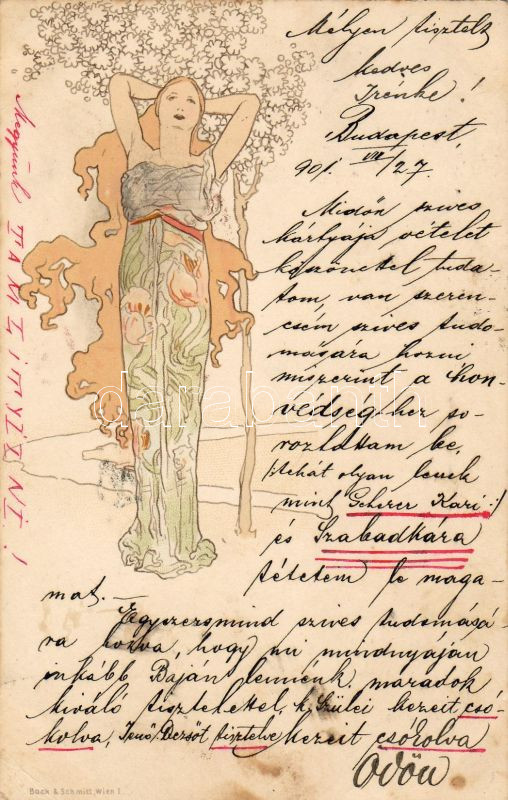 Mélyen tisztelt
kedves
Irénke!
Budapest,
901. VII/27.
Midőn szives
kártyája vételét
köszönettel tuda-
tom, van szeren-
csém szives tudo-
mására hozni
miszerint a hon-
védséghez so-
roztattam be,
/:tehát olyan leszek
mint Scherer Kari:/
és Szabadkára
tétetem le maga-
mat. –
Egyszersmind szives tudomásá-
ra hozva, hogy mi mindnyájan
inkább Baján lennénk, maradok
kiváló tisztelettel, k. Szülei kezeit csó-
kolva, Jenő, Dezsőt tisztelve kezeit csókolva
Ödön
Megyünk
Back & Schmitt, Wien I.
darabanth